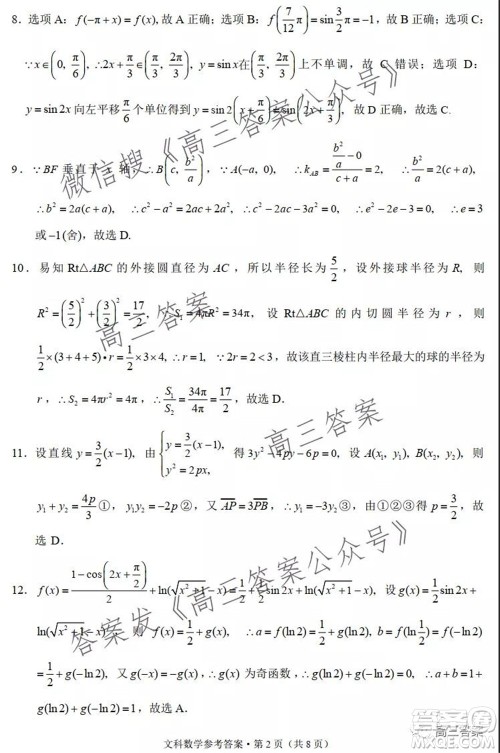 8. 选项 A：f(−π+x)=f(x), 故 A 正确；选项 B：f(7/12 π)=sin 3/2 π=−1，故 B 正确；选项 C：
∵x∈(0, π/6), ∴2x+π/3∈(π/3, 2π/3), y=sin x在(π/3, 2π/3)上不单调，故 C 错误；选项 D：
y=sin2x 向左平移 π/6 个单位得到 y=sin2(x+π/6)=sin(2x+π/3)，故 D 正确，故选 C.
9. ∵BF 垂直于 x 轴，∴B(c, b²/a), ∵A(−a, 0), ∴k_AB=(b²/a−0)/(c+a)=2, ∴b²/a=2(c+a),
∴b²=2a(c+a), ∴c²−a²=2ac+2a², ∴c²−2ac−3a²=0, ∴e²−2e−3=0, ∴e=3
或−1(舍)，故选 D.
10. 易知 Rt△ABC 的外接圆直径为 AC，所以半径长为 5/2，设外接球半径为 R, 则
R²=(5/2)²+(3/2)²=17/2, S₁=4πR²=34π，设 Rt△ABC 的内切圆半径为 r，则
1/2×(3+4+5)•r=1/2×3×4, ∴r=1, ∵2r=2<3，故该直三棱柱内半径最大的球的半径为
r，∴S₂=4πr²=4π, ∴S₁/S₂=34π/4π=17/2，故选 D.
11. 设直线 y=3/2(x−1)，由{y=3/2(x−1), y²=2px, 得 3y²−4py−6p=0, 设 A(x₁, y₁), B(x₂, y₂),
y₁+y₂=4p/3①，y₁y₂=−2p②，又∵AP=3PB，∴y₁=−3y₂③，由①②③得 p=3/2，故
选 D.
12. f(x)=(1−cos(2x+π/2))/2+ln(√(x²+1)−x)=1/2+1/2 sin2x+ln(√(x²+1)−x)，设 g(x)=1/2 sin2x+
ln(√(x²+1)−x)，则 f(x)=1/2+g(x), ∴a=f(ln2)=1/2+g(ln2), b=f(−ln2)
=1/2+g(−ln2)，又 g(−x)=−g(x), ∴g(x) 为奇函数，∴g(ln2)+g(−ln2)=0，∴a+b=1+
g(ln2)+g(−ln2)=1，故选 A.
文科数学参考答案·第 2 页（共 8 页）
微信搜《高三答案公众号》
高三答案
高三答案
答案发《高三答案公众号》
高三答案